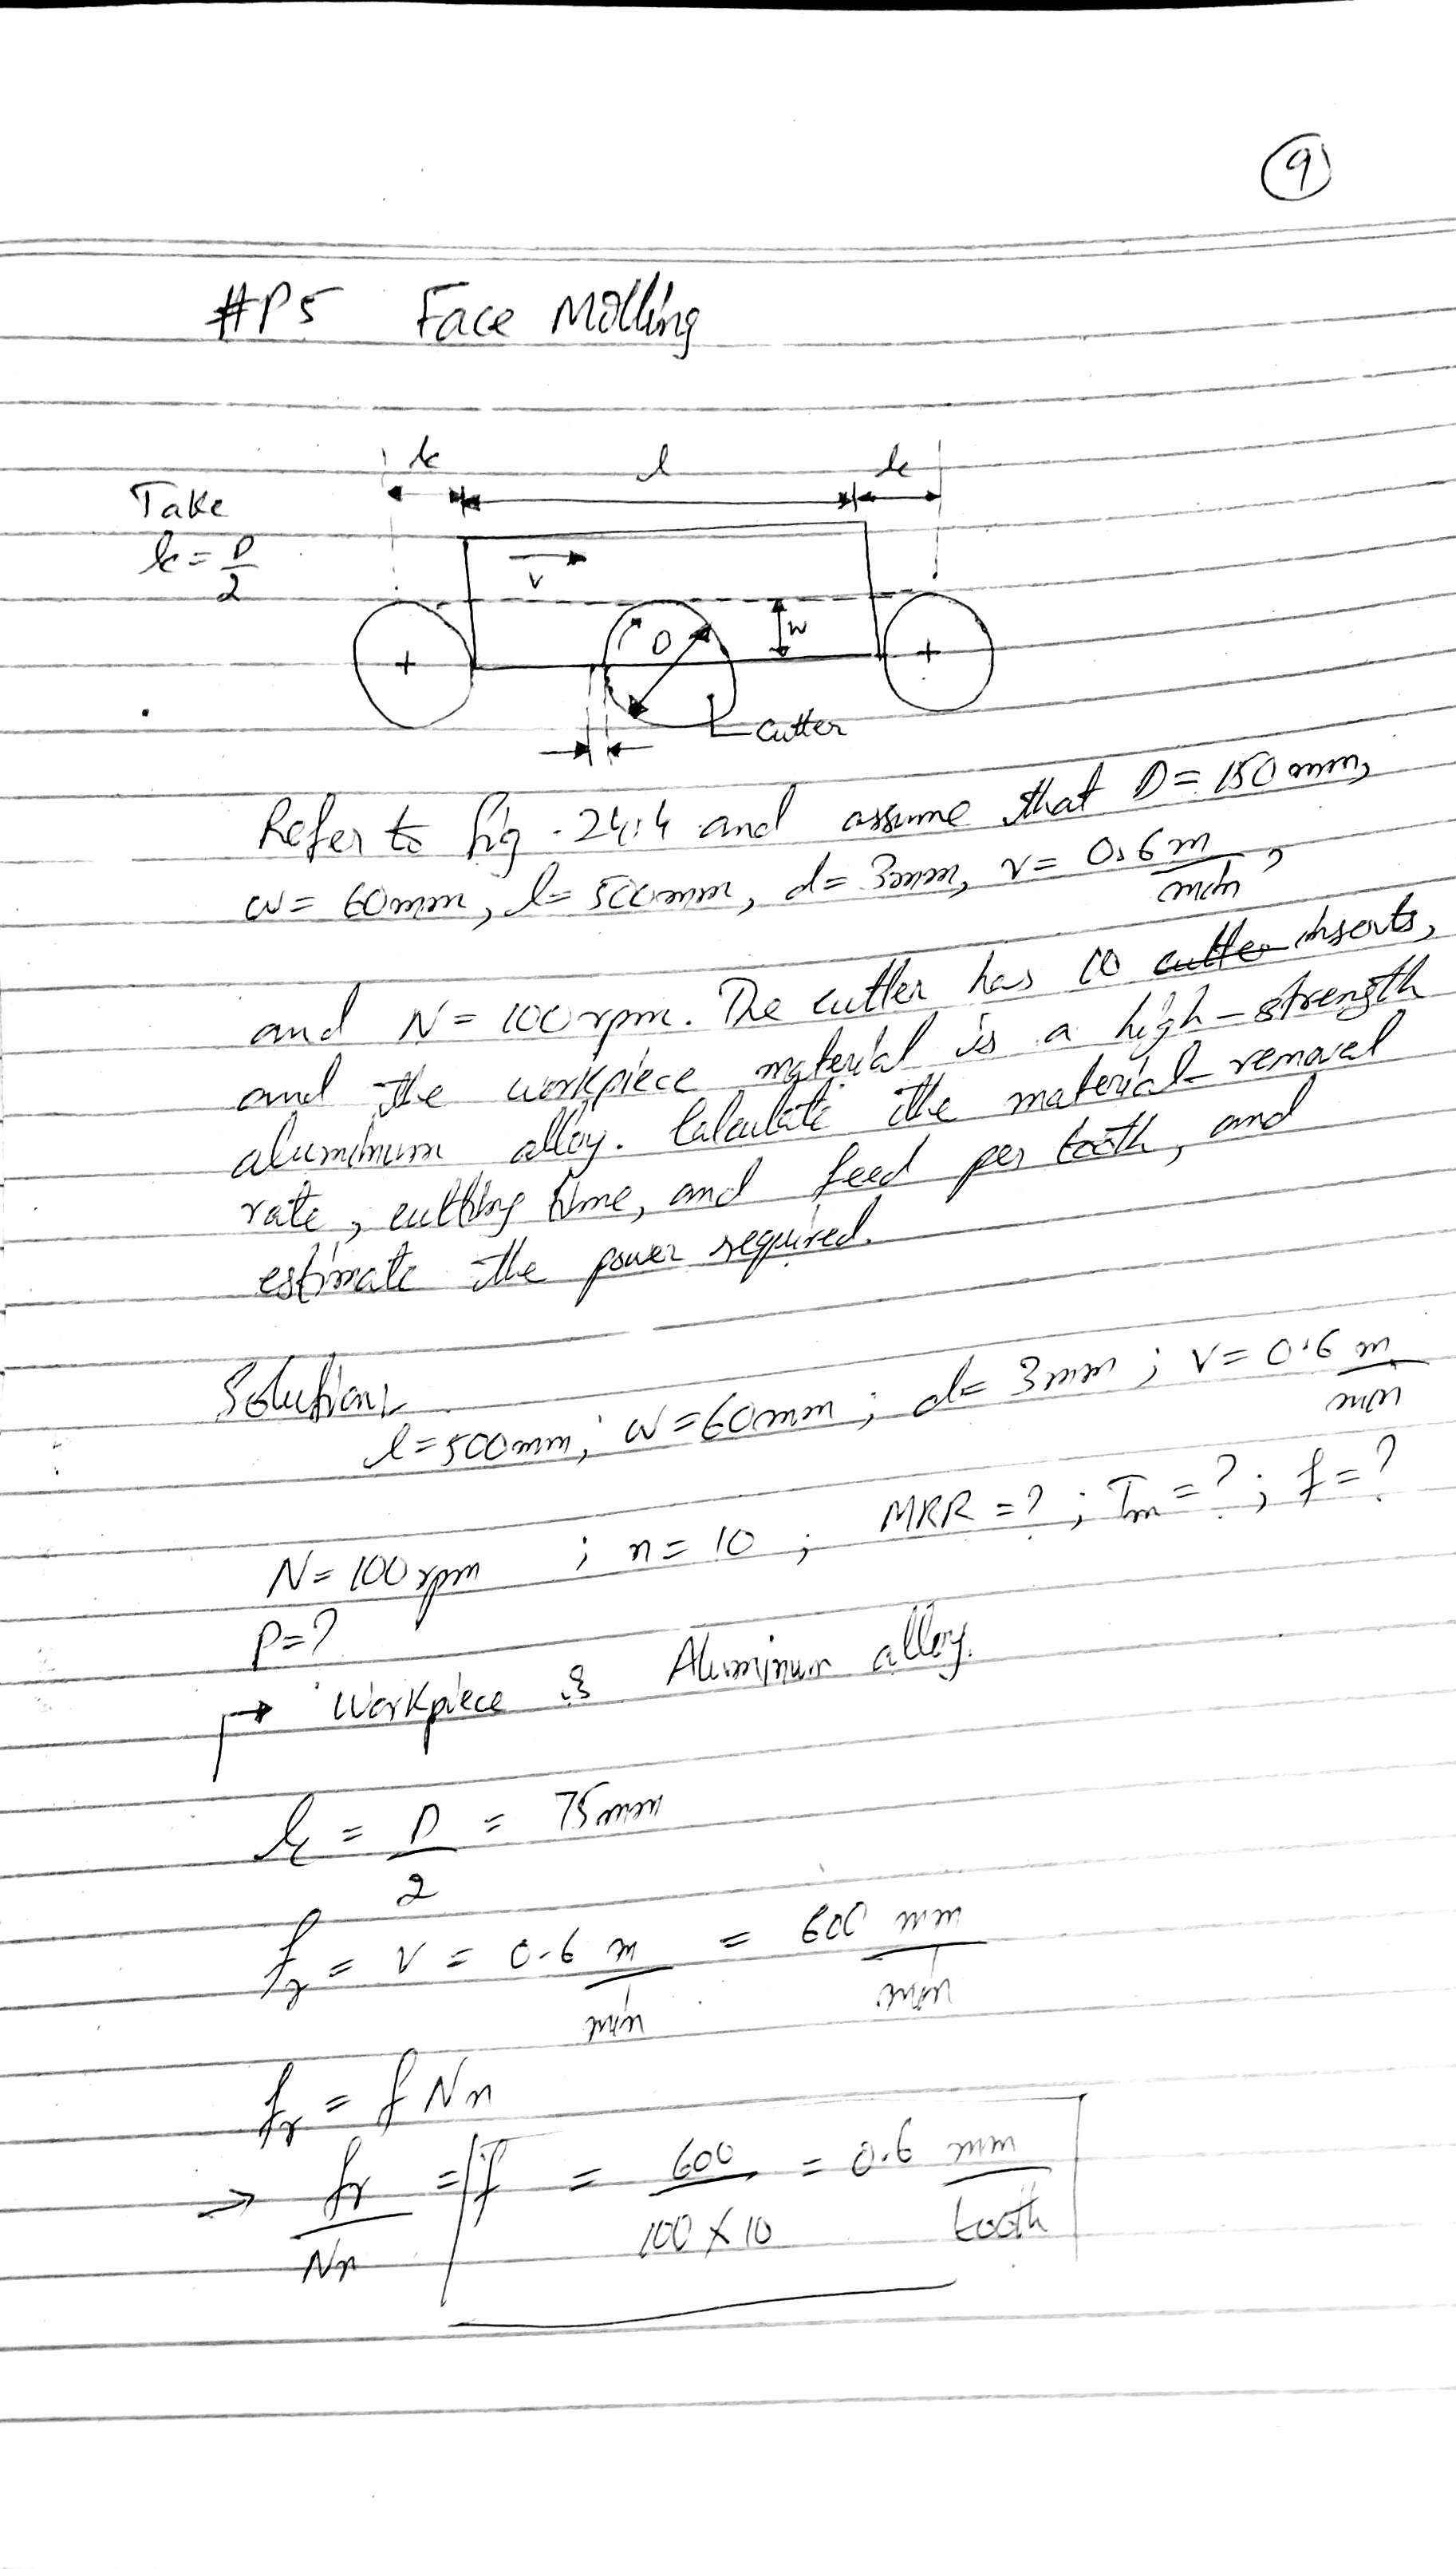 9
#P5 Face Milling
lc l lc
Take
lc = D/2
v
D
w
cutter
Refer to fig. 24.4 and assume that D = 150 mm,
w = 60mm, l = 500mm, d = 3mm, v = 0.6 m/min,
and N = 100 rpm. The cutter has 10 cutter inserts,
and the workpiece material is a high-strength
aluminum alloy. Calculate the material-removal
rate, cutting time, and feed per tooth, and
estimate the power required.
Solution
l = 500mm; w = 60mm; d = 3mm; v = 0.6 m/min
N = 100 rpm ; n = 10 ; MRR = ? ; Tm = ? ; f = ?
P = ?
→ Workpiece is Aluminum alloy.
lc = D/2 = 75mm
fr = v = 0.6 m/min = 600 mm/min
fr = f N n
⇒ fr/Nn = f = 600/100 × 10 = 0.6 mm/tooth